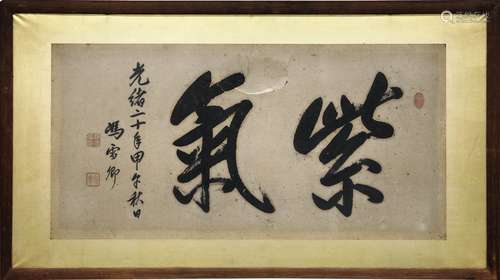 紫氣
光緒二十年甲午秋日
馮雪卿